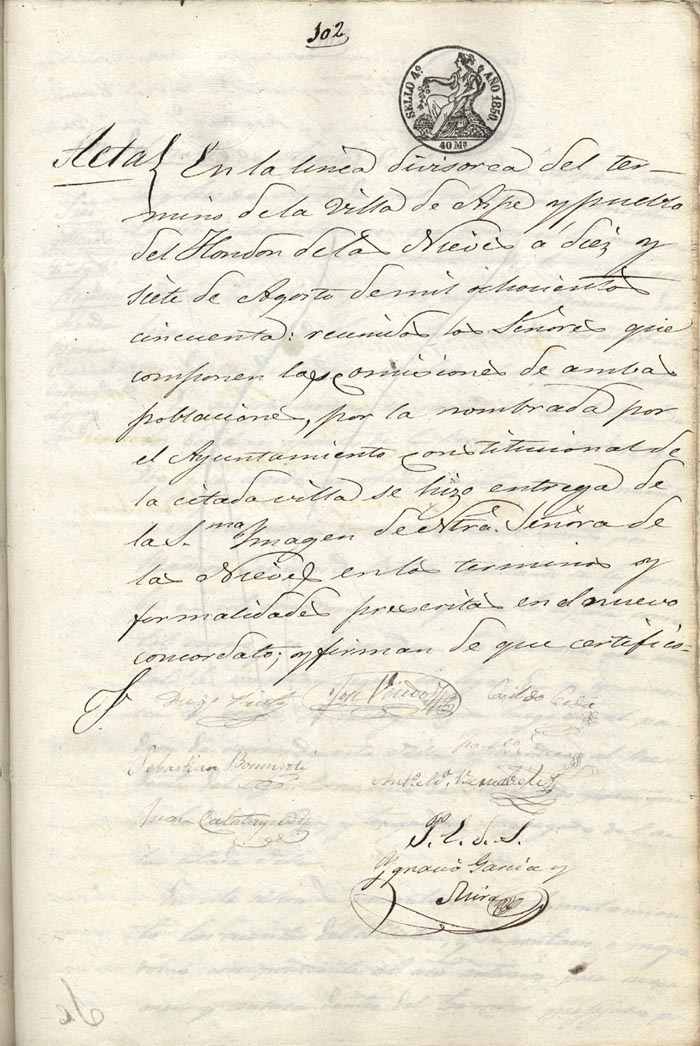 102
SELLO 4º AÑO 1850.
40 Ms
Acta { En la linea divisorea del ter-
mino de la Villa de Aspe y pueblo
del Hondon de las Nieves á diez y
siete de Agosto de mil ochocientos
cincuenta: reunidos los Señores que
componen las comisiones de ambas
poblaciones, por la nombrada por
el Ayuntamiento constitucional de
la citada villa se hizo entrega de
la S.ma Imagen de Ntrâ. Señora de
las Nieves en los terminos y
formalidades prescritas en el nuevo
concordato; y firman de que certifico-
Jose
Sebastian
Juan Calatayud
P. l. d. S.
Ygnacio Garcia y
Mira